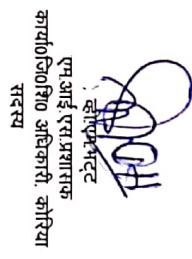 एम.आई.एस.प्रशासक
कार्या0जि0शि0 अधिकारी, कोरिया
सदस्य